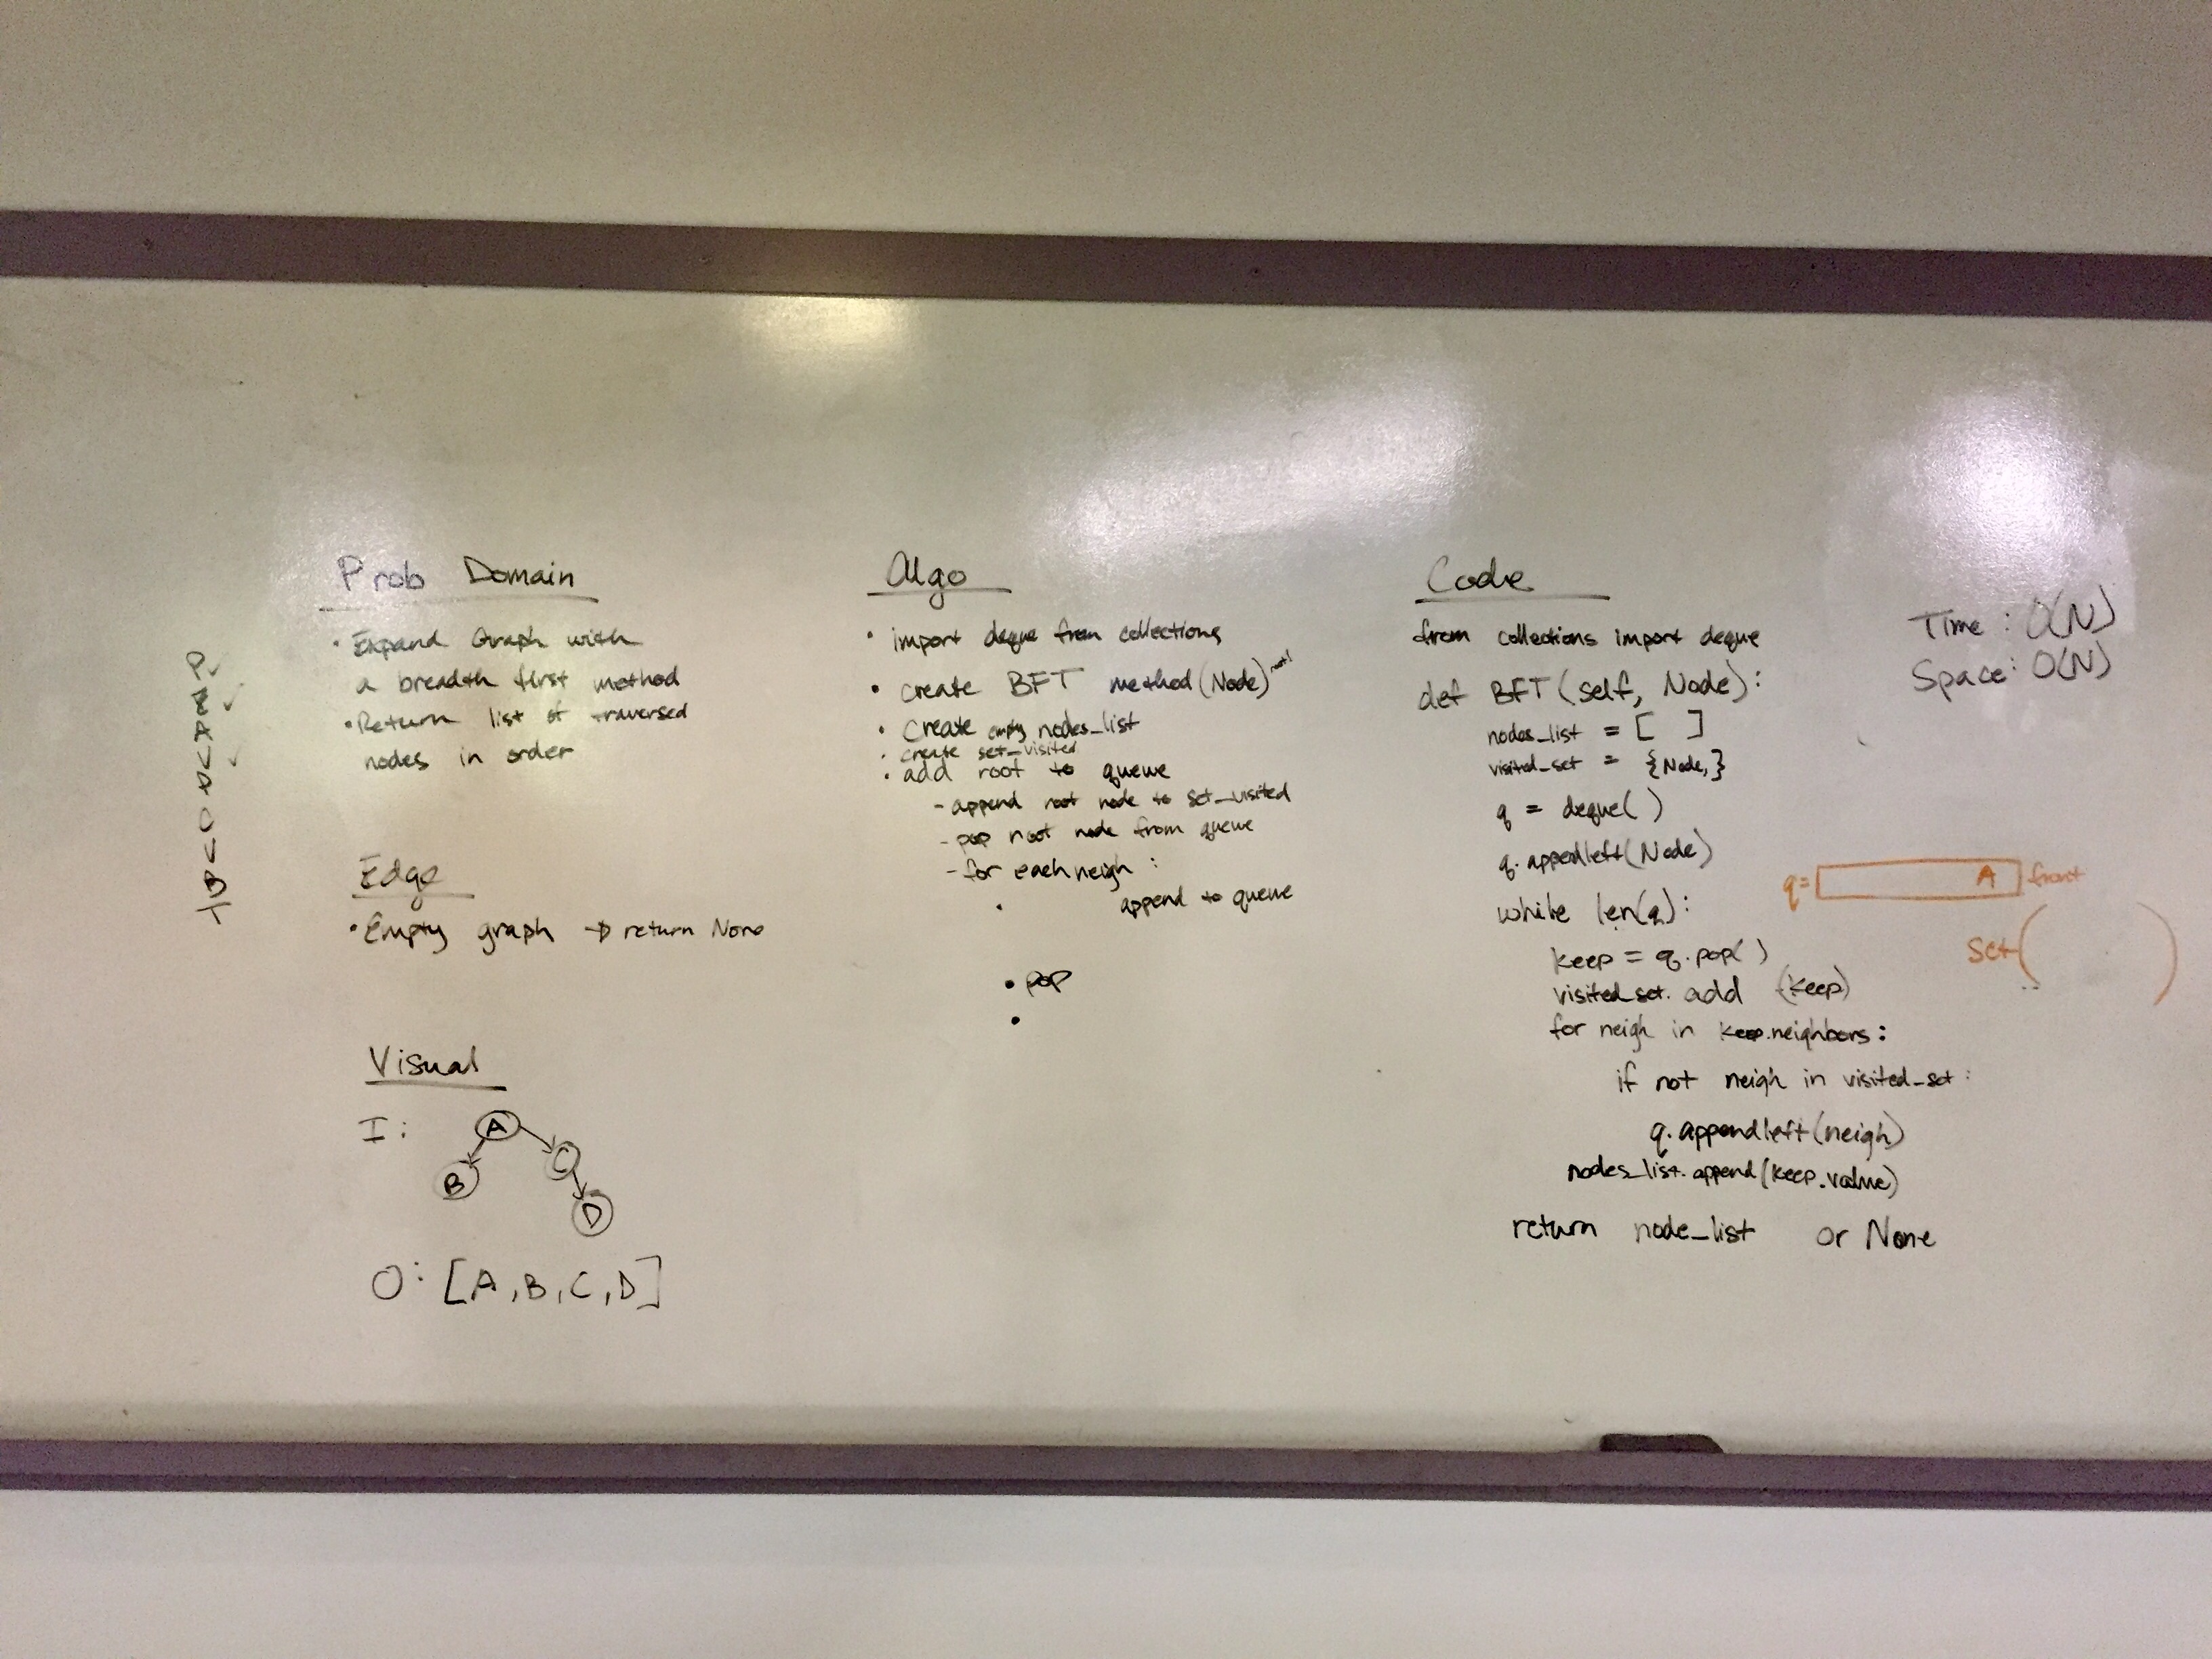 P
E
A
V
P
C
V
B
T
Prob Domain
• Expand Graph with
a breadth first method
• Return list of traversed
nodes in order
Edge
• Empty graph → return None
Visual
I:
A
B
C
D
O: [A, B, C, D]
Algo
• import deque from collections
• create BFT method (Node) root
• Create empty nodes_list
• create set_visited
• add root to queue
- append root node to set_visited
- pop root node from queue
- for each neigh :
append to queue
• pop
•
Code
from collections import deque
def BFT (self, Node):
nodes_list = [ ]
visited_set = {Node,}
q = deque( )
q.appedleft(Node)
while len(q):
keep = q.pop( )
visited_set. add (keep)
for neigh in keep.neighbors:
if not neigh in visited_set:
q.appendleft(neigh)
nodes_list.append(keep.value)
return node_list or None
Time : O(N)
Space: O(N)
q= A front
set( )